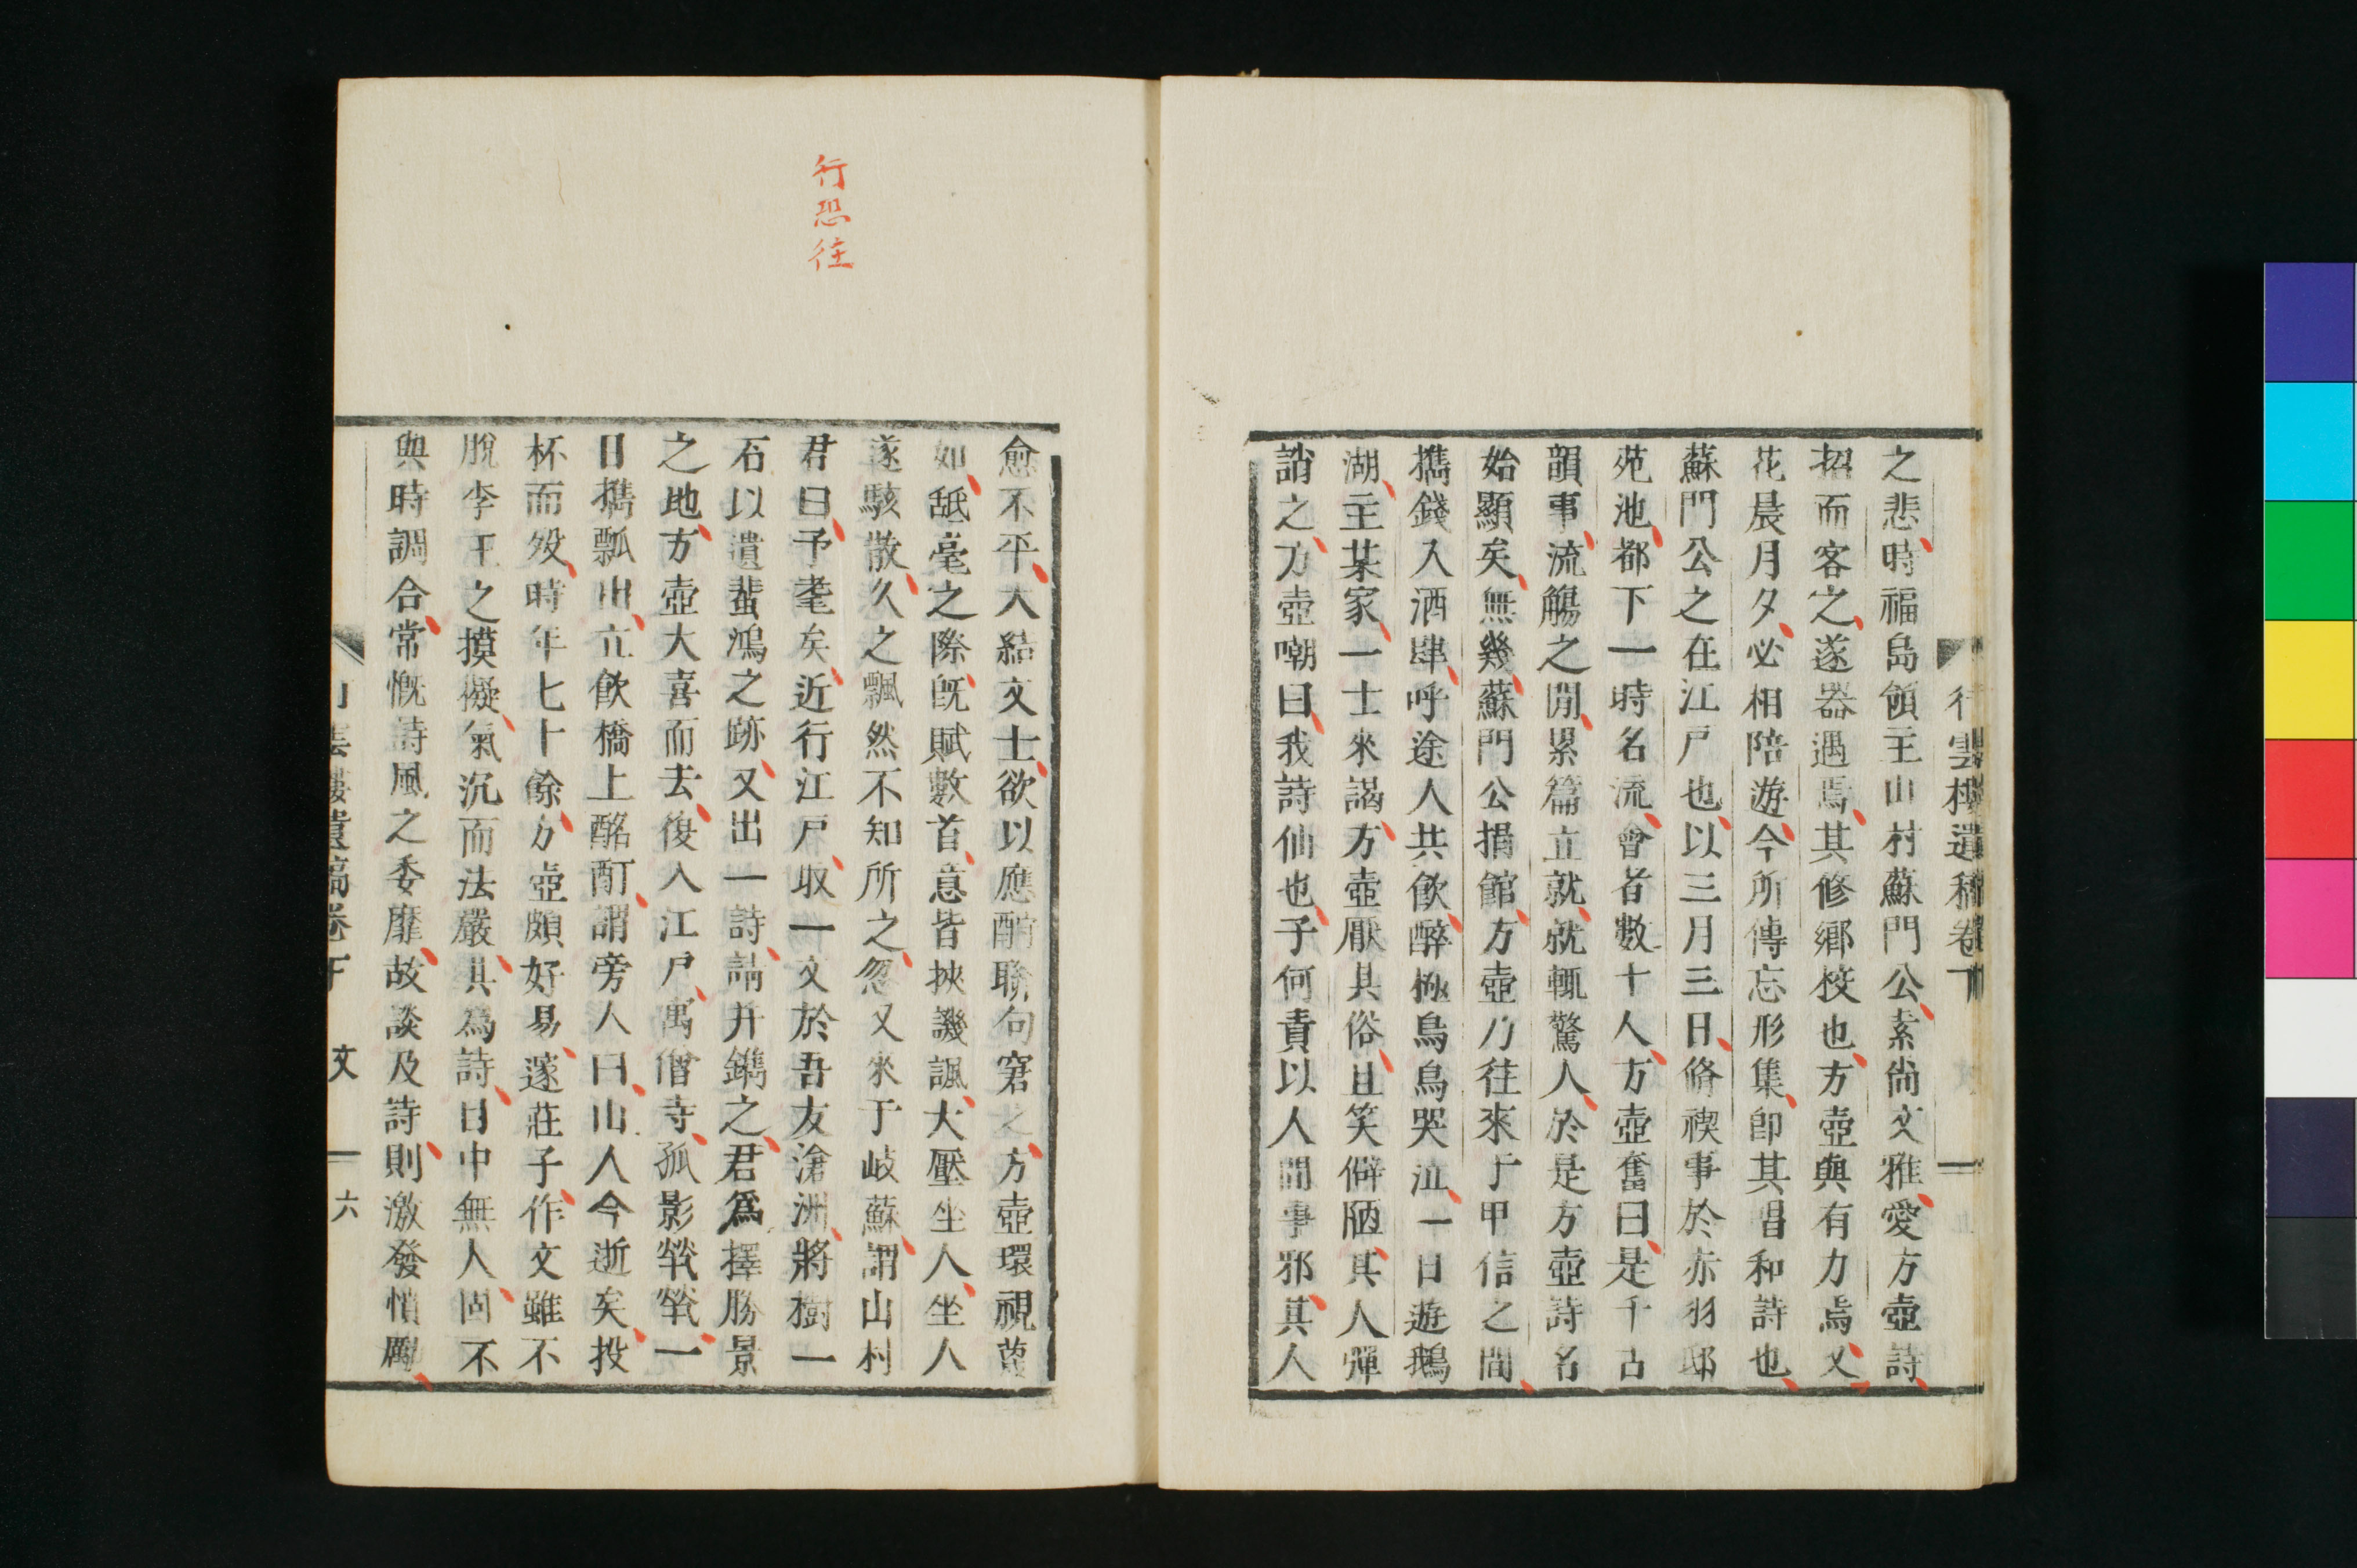 行雲樓遺稿卷下
之悲時福島領主山村蘇門公素尚文雅愛方壺詩
招而客之遂器遇焉其修鄉校也方壺與有力焉又
花晨月夕必相陪遊今所傳忘形集即其唱和詩也
蘇門公之在江戶也以三月三日脩禊事於赤羽邸
苑池都下一時名流會者數十人方壺奮曰是千古
韻事流觴之間累篇立就就輒驚人於是方壺詩名
始顯矣無幾蘇門公捐館方壺乃往來于甲信之間
携錢入酒肆呼途人共飲醉極烏烏哭泣一日遊鵝
湖主某家一士來謁方壺厭其俗且笑僻陋其人彈
誚之方壺嘲曰我詩仙也子何責以人間事邪其人
行恐往
愈不平大結文士欲以應酬聯句窘之方壺環視蔑
如舐毫之際旣賦數首意皆挾譏諷大壓坐人坐人
遂駭散久之飄然不知所之忽又來于岐蘇謂山村
君曰予耄矣近行江戶取一文於吾友滄洲將樹一
石以遺蜚鴻之跡又出一詩請并鐫之君爲擇勝景
之地方壺大喜而去後入江戶寓僧寺孤影煢煢一
日携瓢出立飲橋上酩酊謂旁人曰山人今逝矣投
杯而歿時年七十餘方壺頗好易邃莊子作文雖不
脫李王之摸擬氣沉而法嚴其爲詩日中無人固不
與時調合常慨詩風之委靡故談及詩則激發悄厲
雲樓遺稿卷下 文 六